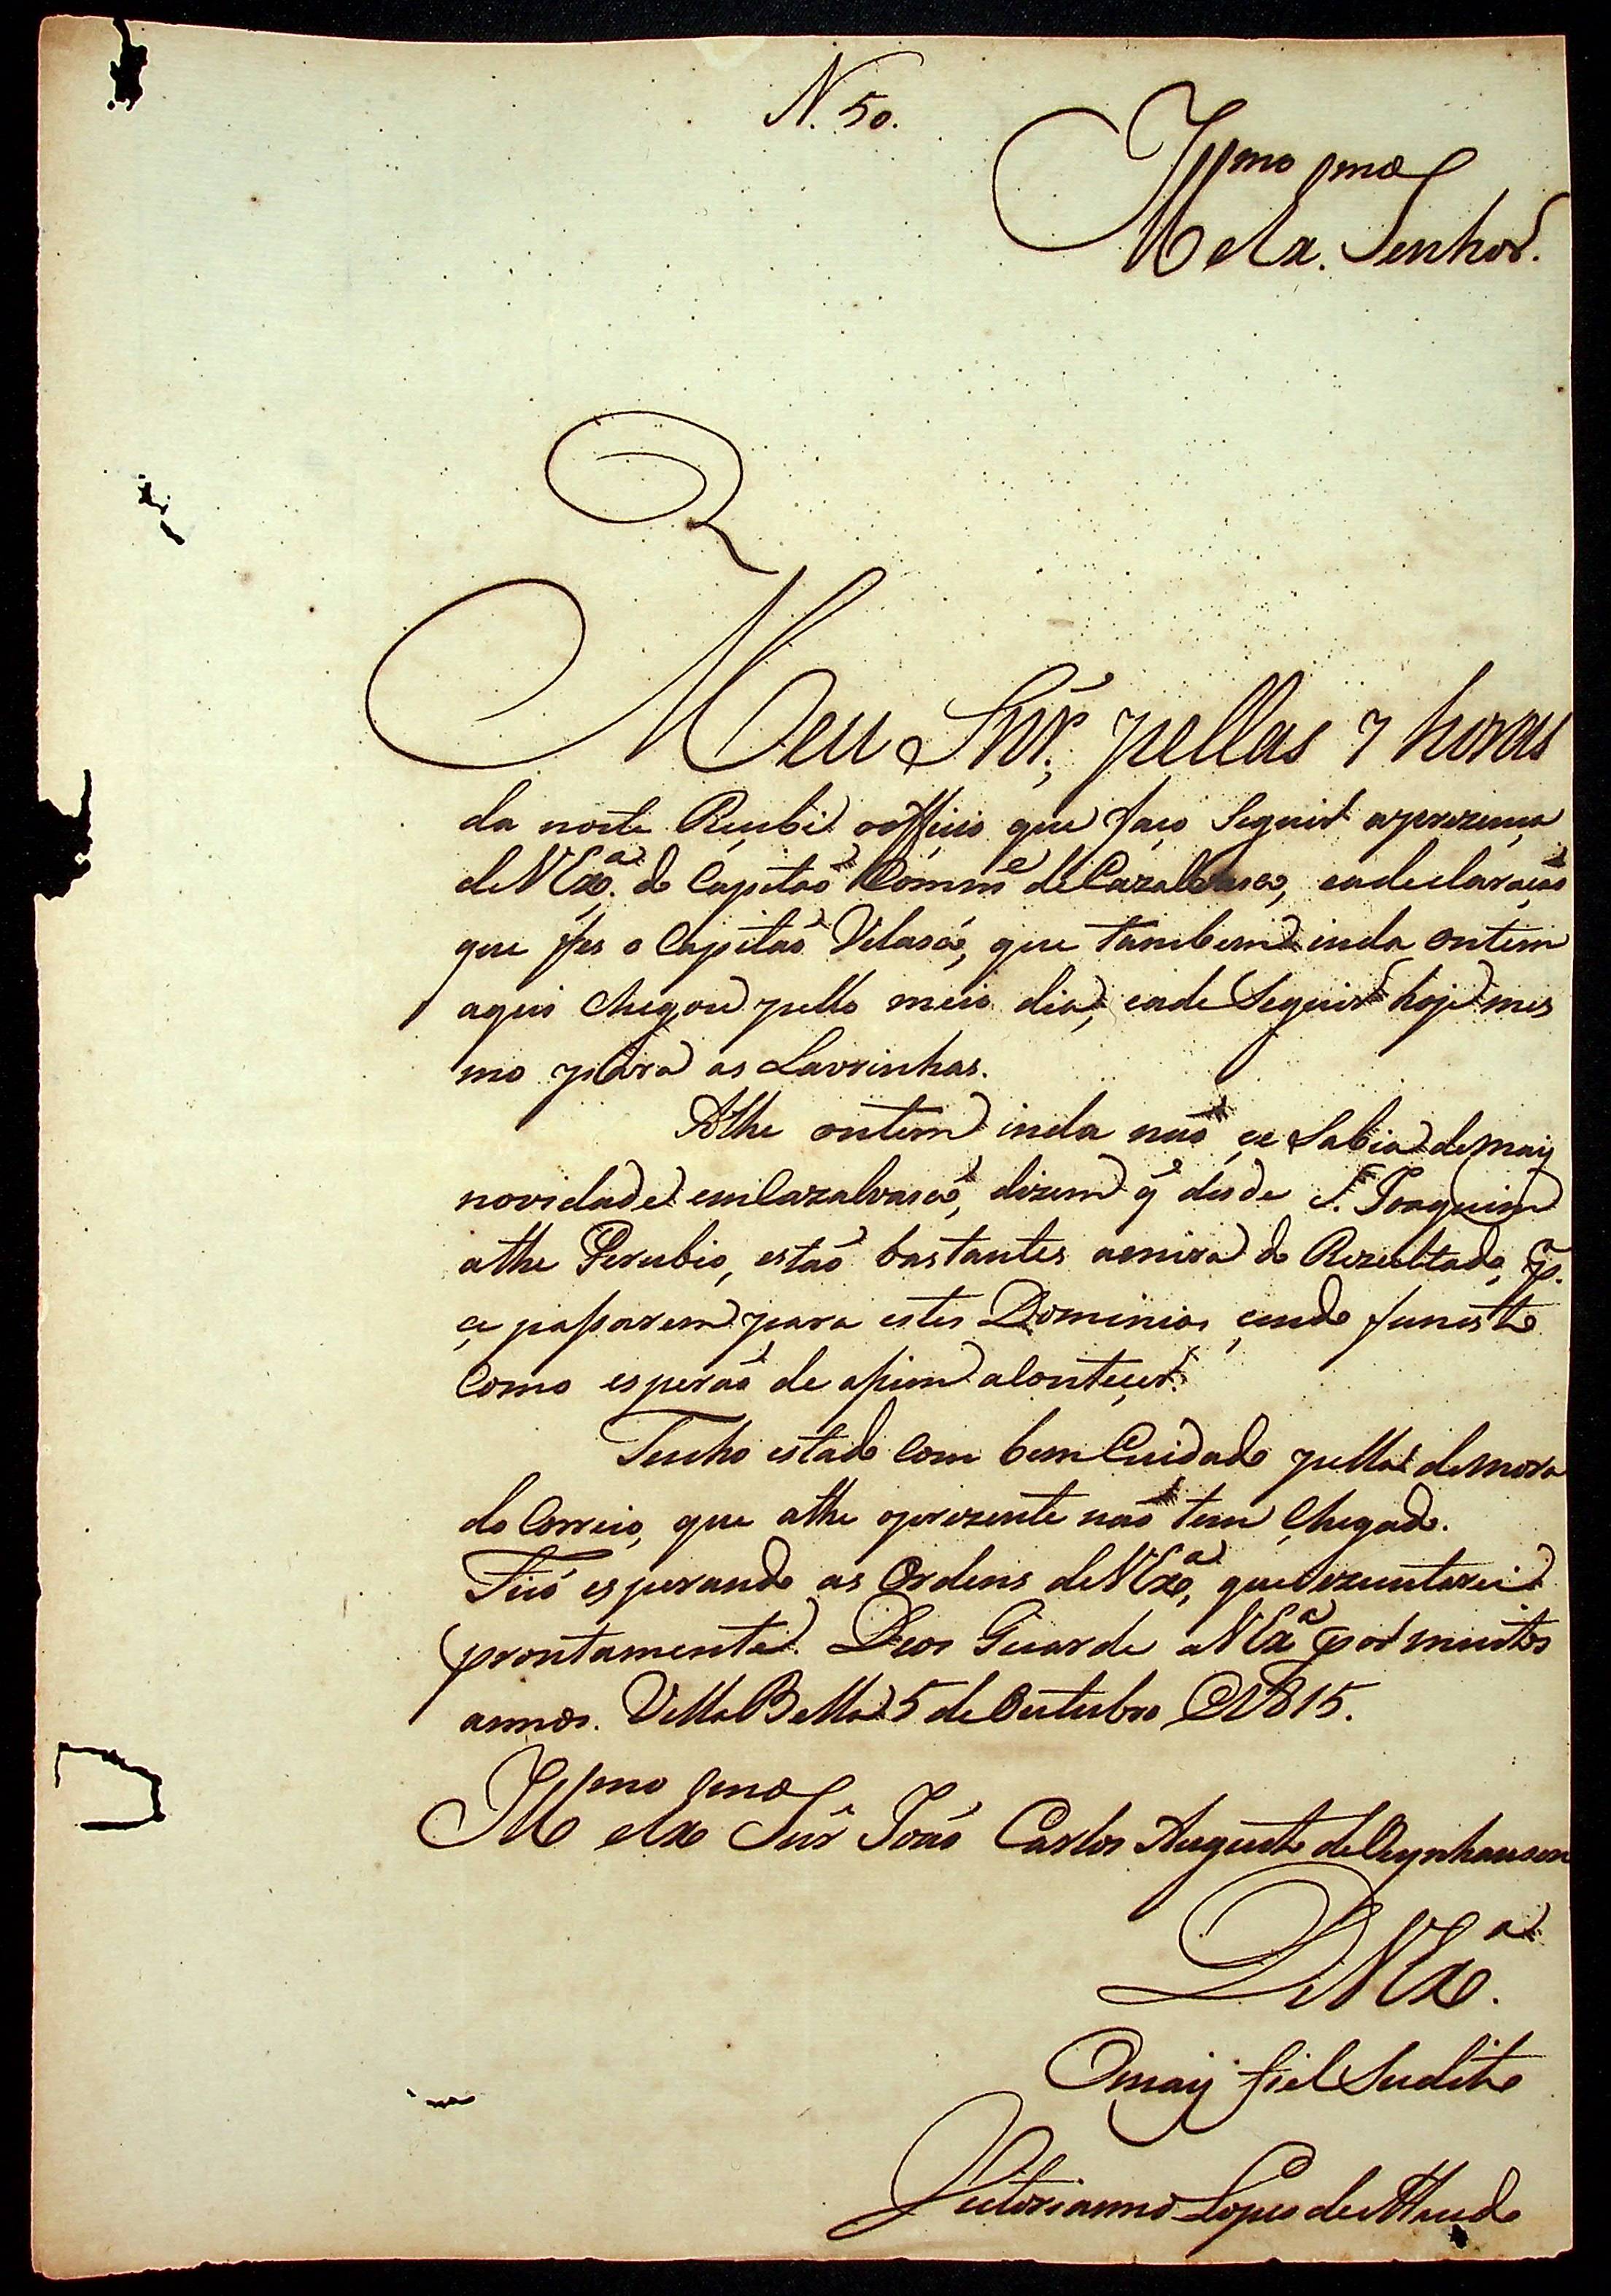 N. 50.
Ill.mo e Ex.mo Senhor.
Meu Snr.; pellas 7 horas
da noite Reçubi oofficio que faço Seguir aprezença
de VEx.a do Capitaõ Comm.e de Cazalvasco, eadeclaraçaõ
que fes o Capitaõ Velasco, que tambem inda ontem
aqui chegou pello meio dia, eade Seguir hoje mes
mo para as Lavrinhas.
Athe ontem inda naõ çe Sabia de maij
novidade em Cazalvasco, dizem q̃ desde S. Joaquim
athe Perubio, estaõ bastantes amira do Rezultado, p.
çe paſsarem para estes Dominios çendo funesto
Como esperaõ de aſsim aConteçer.
Tenho estado Com bem Cuidado pella demora
do Correio, que athe oprezente naõ tem Chegado.
Fico esperando as Ordens de VEx.a, que ezecutarei
prontamente. Deos Guarde a VEx.a por muitos
annos. Villa Bella 5 de Outubro D1815.
Ill.mo e Ex.mo Snr João Carlos Augusto de Oeynhausen
De VEx.a
Omaij fiel Sudito
Victorianno Lopes de Macedo